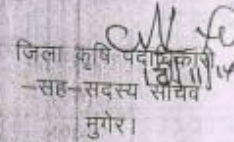 जिला कृषि पदाधिकारी
-सह-सदस्य सचिव
मुगेर।